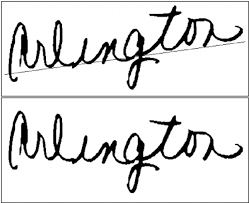 Arlington
Arlington